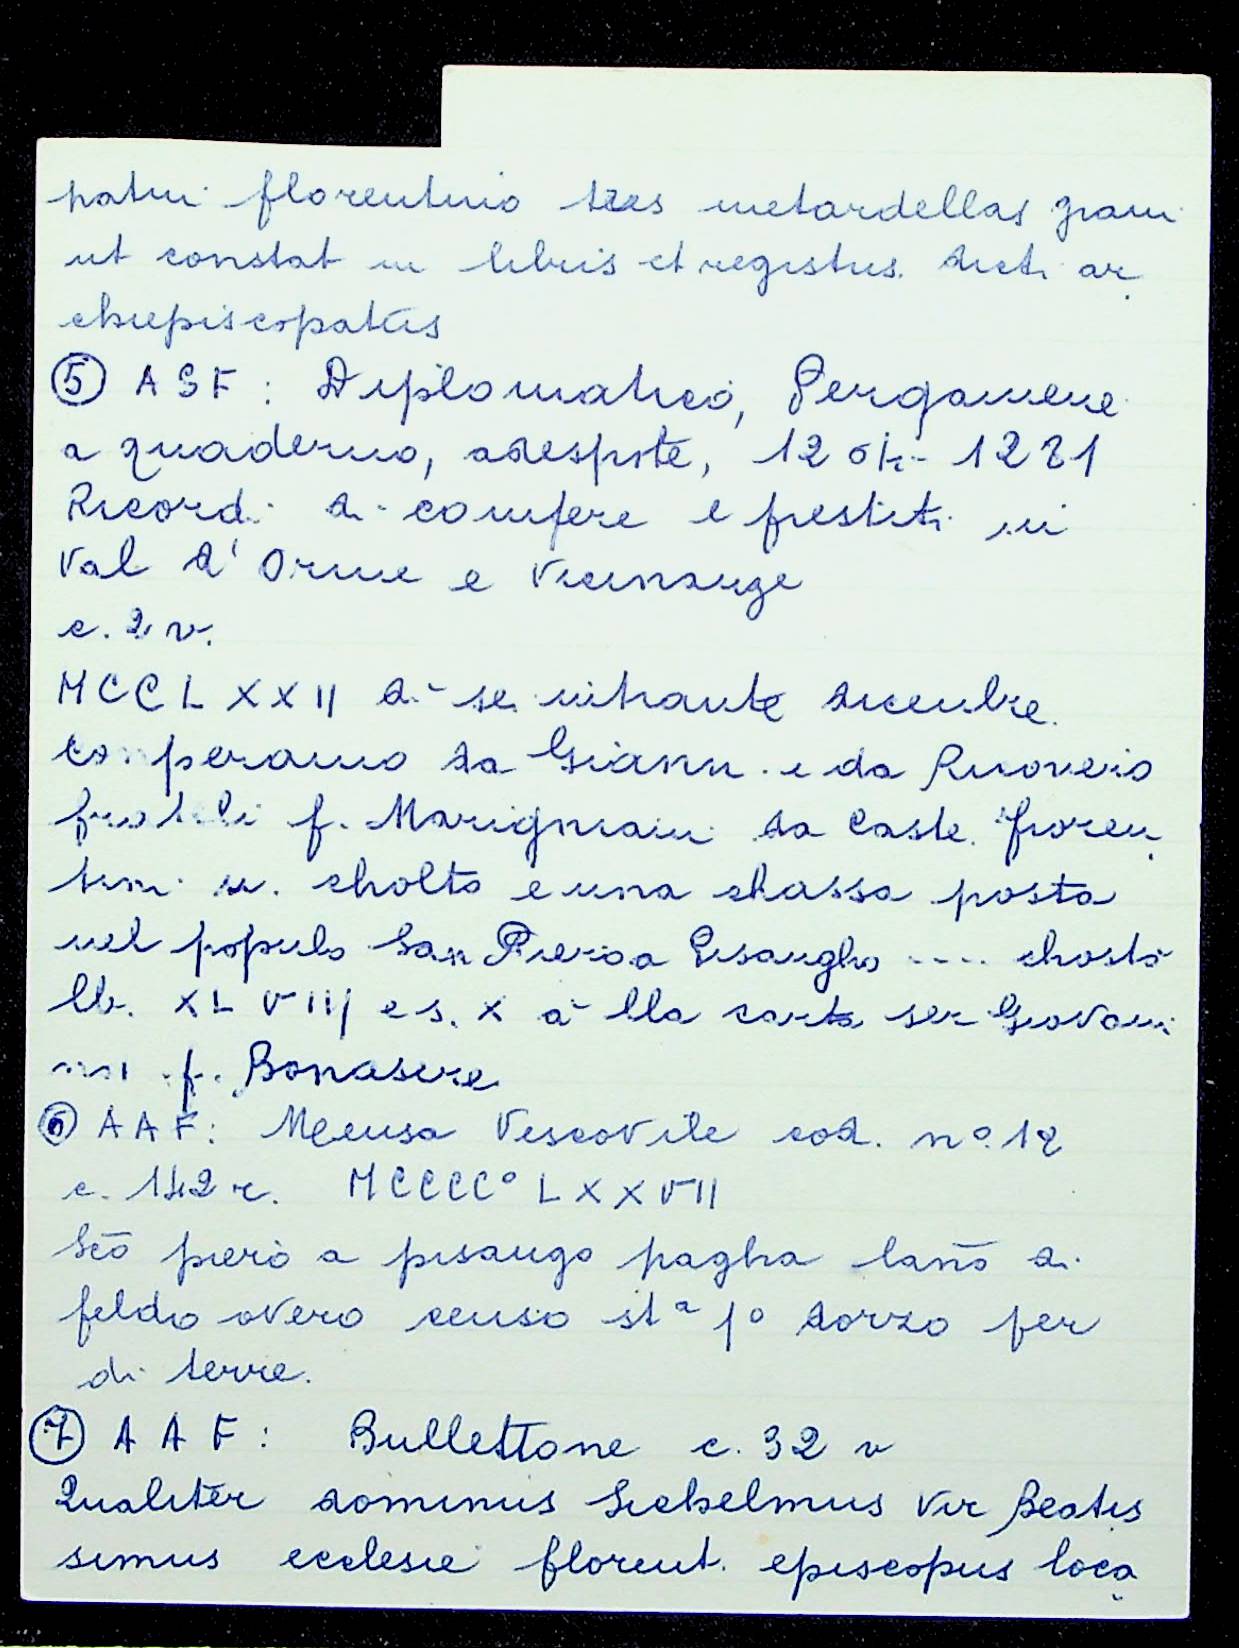 patui florentino tres metardellas grani
ut constat in libris et registris dicti ar
chiepiscopatus
⑤ ASF: Diplomatico, Pergamene
a quaderno, adespote, 12 1281
Ricordi di compere e prestiti in
Val d'Orme e vicinanze
c. 2 v.
MCCLXXII di sei intrante dicenbre.
Conperamo da Gianni e da Ruoveio
fratelli f. Marigniani da Caste. fioren
tini cholto e una chassa posta
nel populo San Piero a Pisangho .... chostò
lb. XLVIIIj e s. X à lla carta ser Giovani
f. Bonasere
⑥ AAF: Mensa Vescovile cod. nº. 12
c. 142 r. MCCCCº LXXVII
Sco̅ piero a pisango pagha lan̅o di
feldo overo censo stª pº d'orzo per
di terre.
⑦ AAF: Bullettone c. 32 v
Qualiter dominus Sichelmus vir Beatis
simus ecclesie florent. episcopus loca